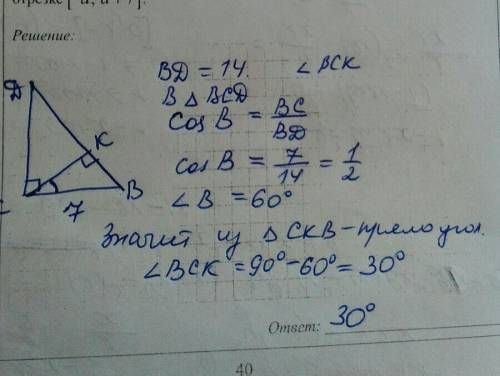 отрезке [
Решение:
BD = 14. ∠ BCK
В △ BCD
cos B = BC/BD
cos B = 7/14 = 1/2
∠ B = 60°
Д
K
B
7
Значит из △ CKB - прямоугол.
∠ BCK = 90° - 60° = 30°
Ответ: 30°
40